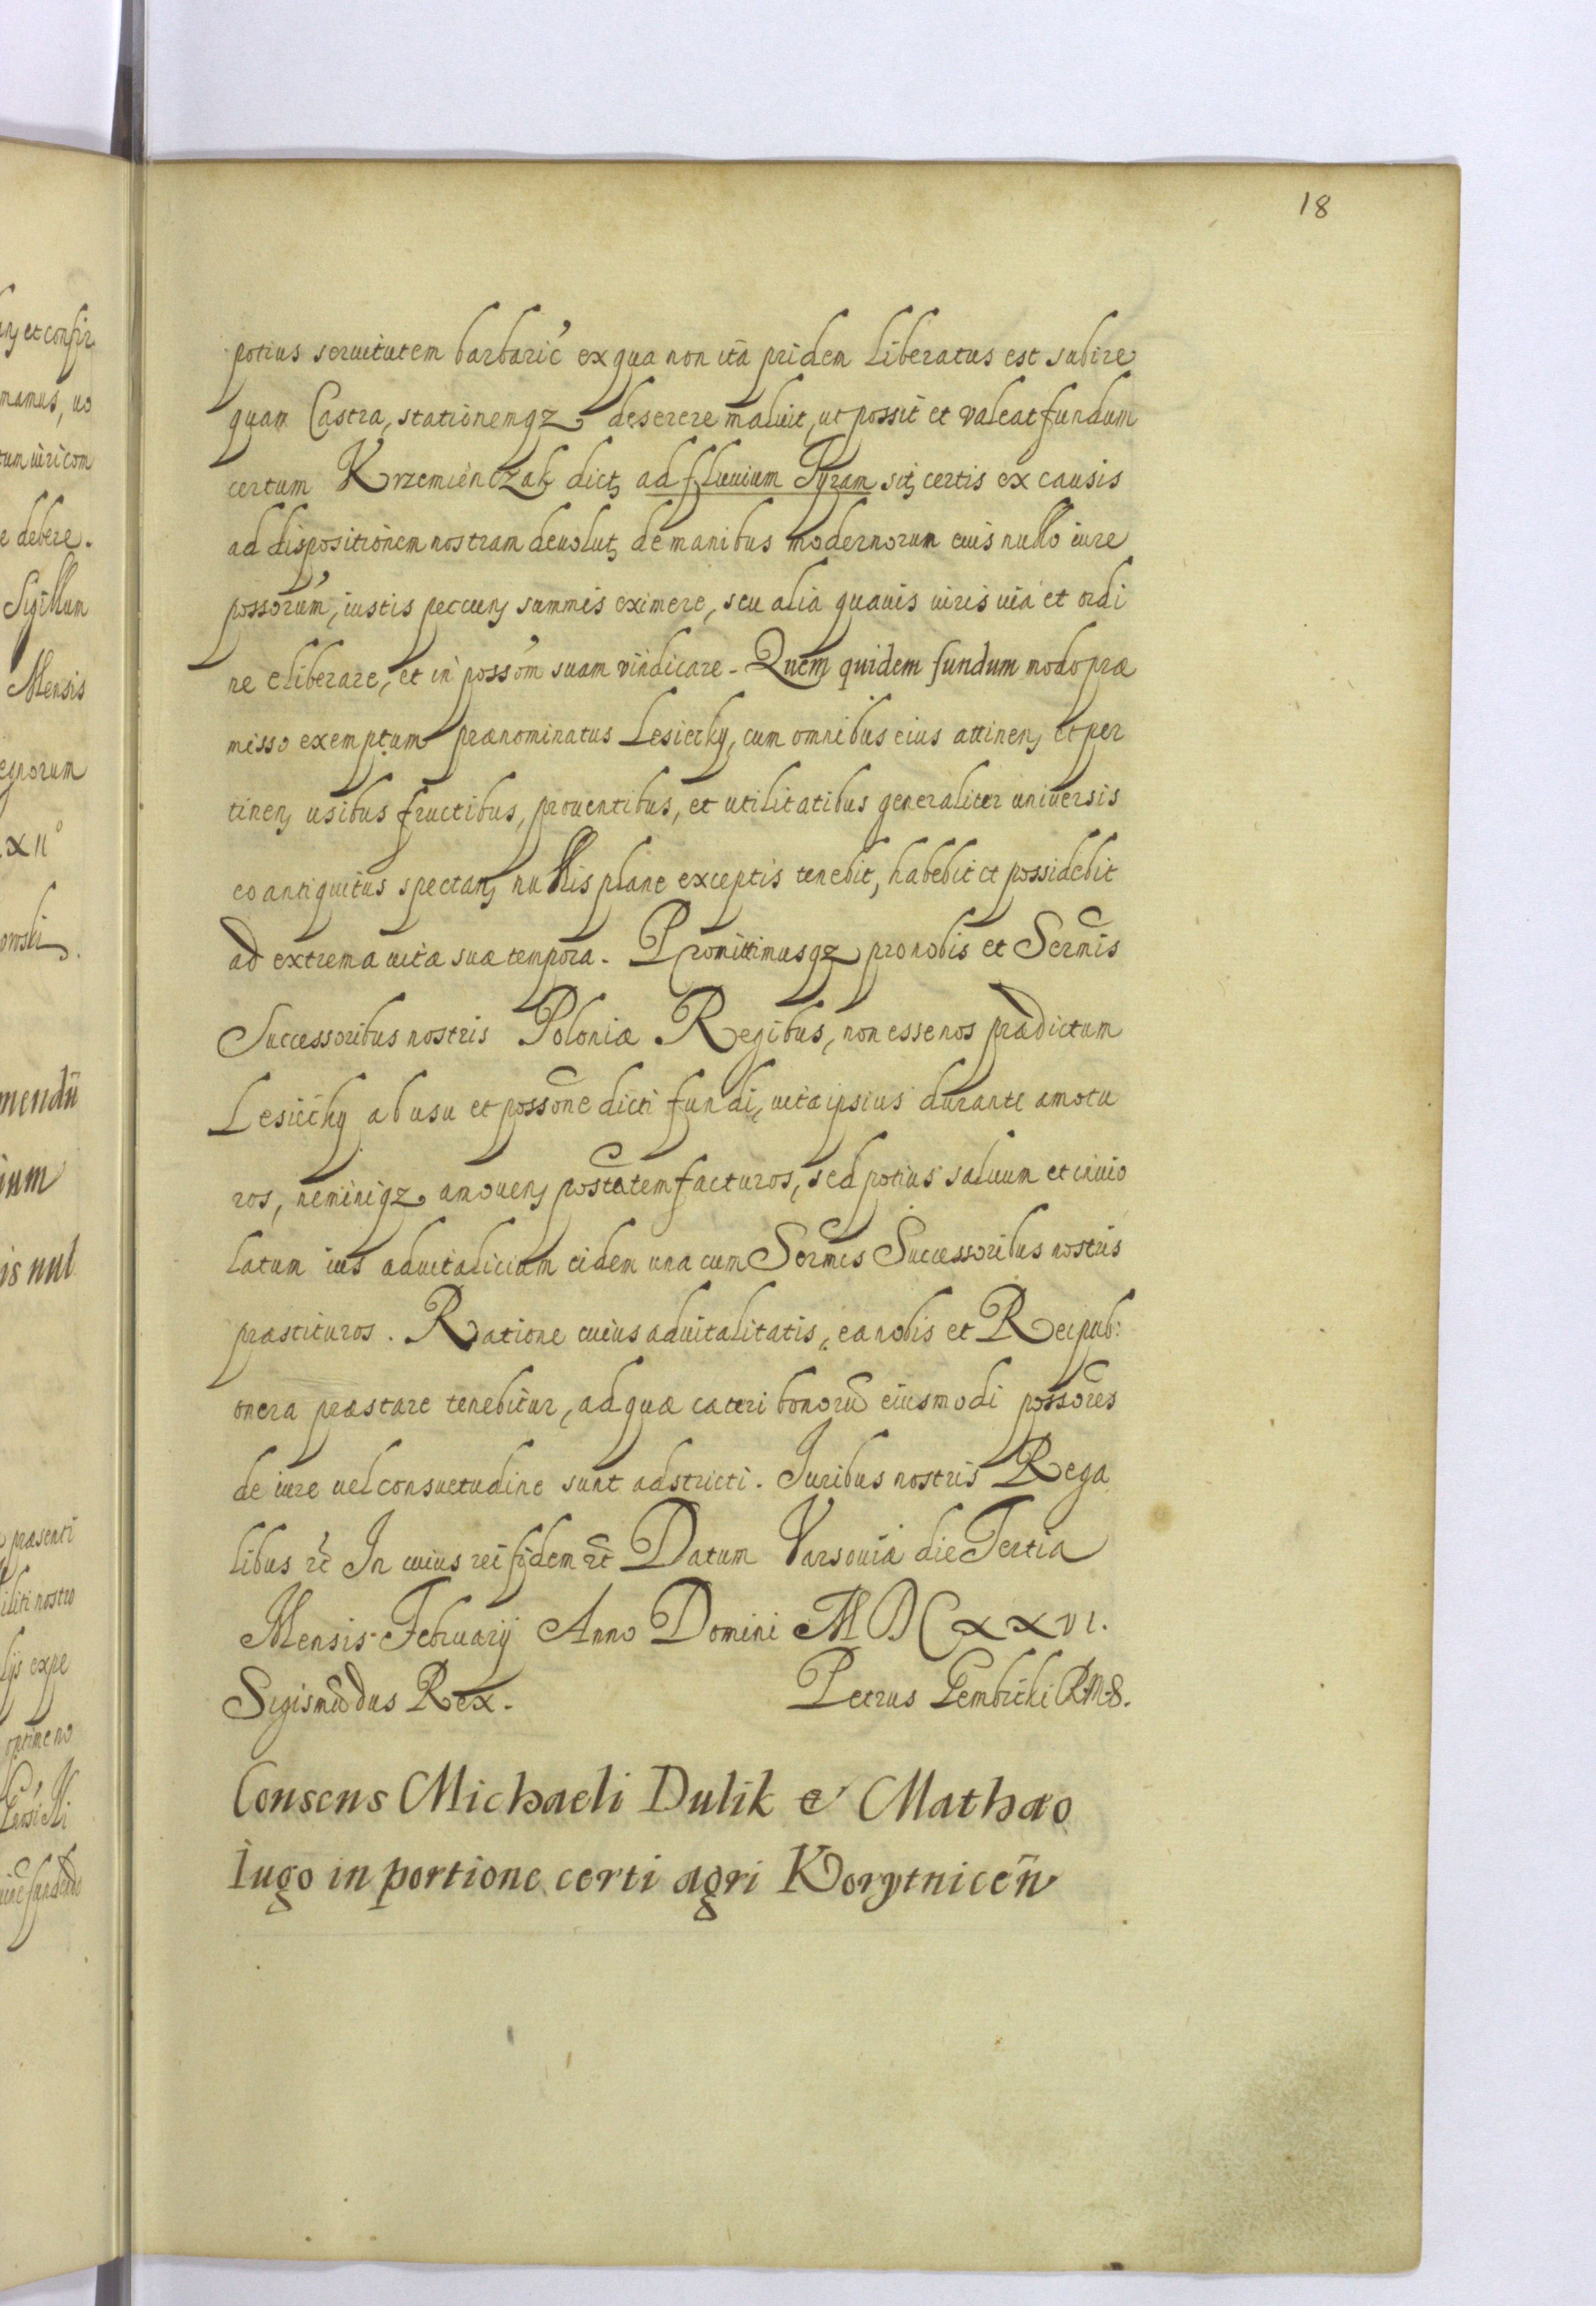 18
potius seruitutem barbaric' ex qua non ita pridem liberatus est subire
quam Castra, stationemqz deserere maluit, ut possit et valeat fundum
certum Krzemienczak dict, ad fluuium Tyram sit, certis ex causis
ad dispositionem nostram deuolut, de manibus modernorum eius nullo iure
possorum, iustis peccun, summis eximere, seu alia quauis iuris uia et ordi
ne eliberare, et in possom suam vindicare - Quem quidem fundum modo præ
misso exemptum prænominatus Lesiecky, cum omnibus eius attinen, et per
tinen, usibus fructibus, prouentibus, et utilitatibus generaliter universis
eo antiquitus spectan, nullis plane exceptis tenebit, habebit et possidebit
ad extrema uitæ suæ tempora. Promittimusqz pro nobis et Sermis
Successoribus nostris Poloniæ Regibus, non esse nos prædictum
Lesiecky ab usu et possone dicti fundi, uita ipsius durante amotu
ros, neminiqz amouen, postatem facturos, sed potius saluum et inuio
latum ius aduitalicium eidem una cum Sermis Successoribus nostris
præstituros. Ratione cuius aduitalitatis, ea nobis et Reipub:
onera præstare tenebitur, ad quæ cæteri bonorū eiusmodi possores
de iure uel consuetudine sunt adstricti. Iuribus nostris Rega
libus etc In cuius rei fidem etc Datum Varsouiæ die Tertia
Mensis Februarij Anno Domini MDCXXVI.
Sigismūdus Rex. Petrus Gembicki R.M.S.
Consens Michaeli Dulik et Mathæo
Iugo in portione certi agri Korytnicen̄